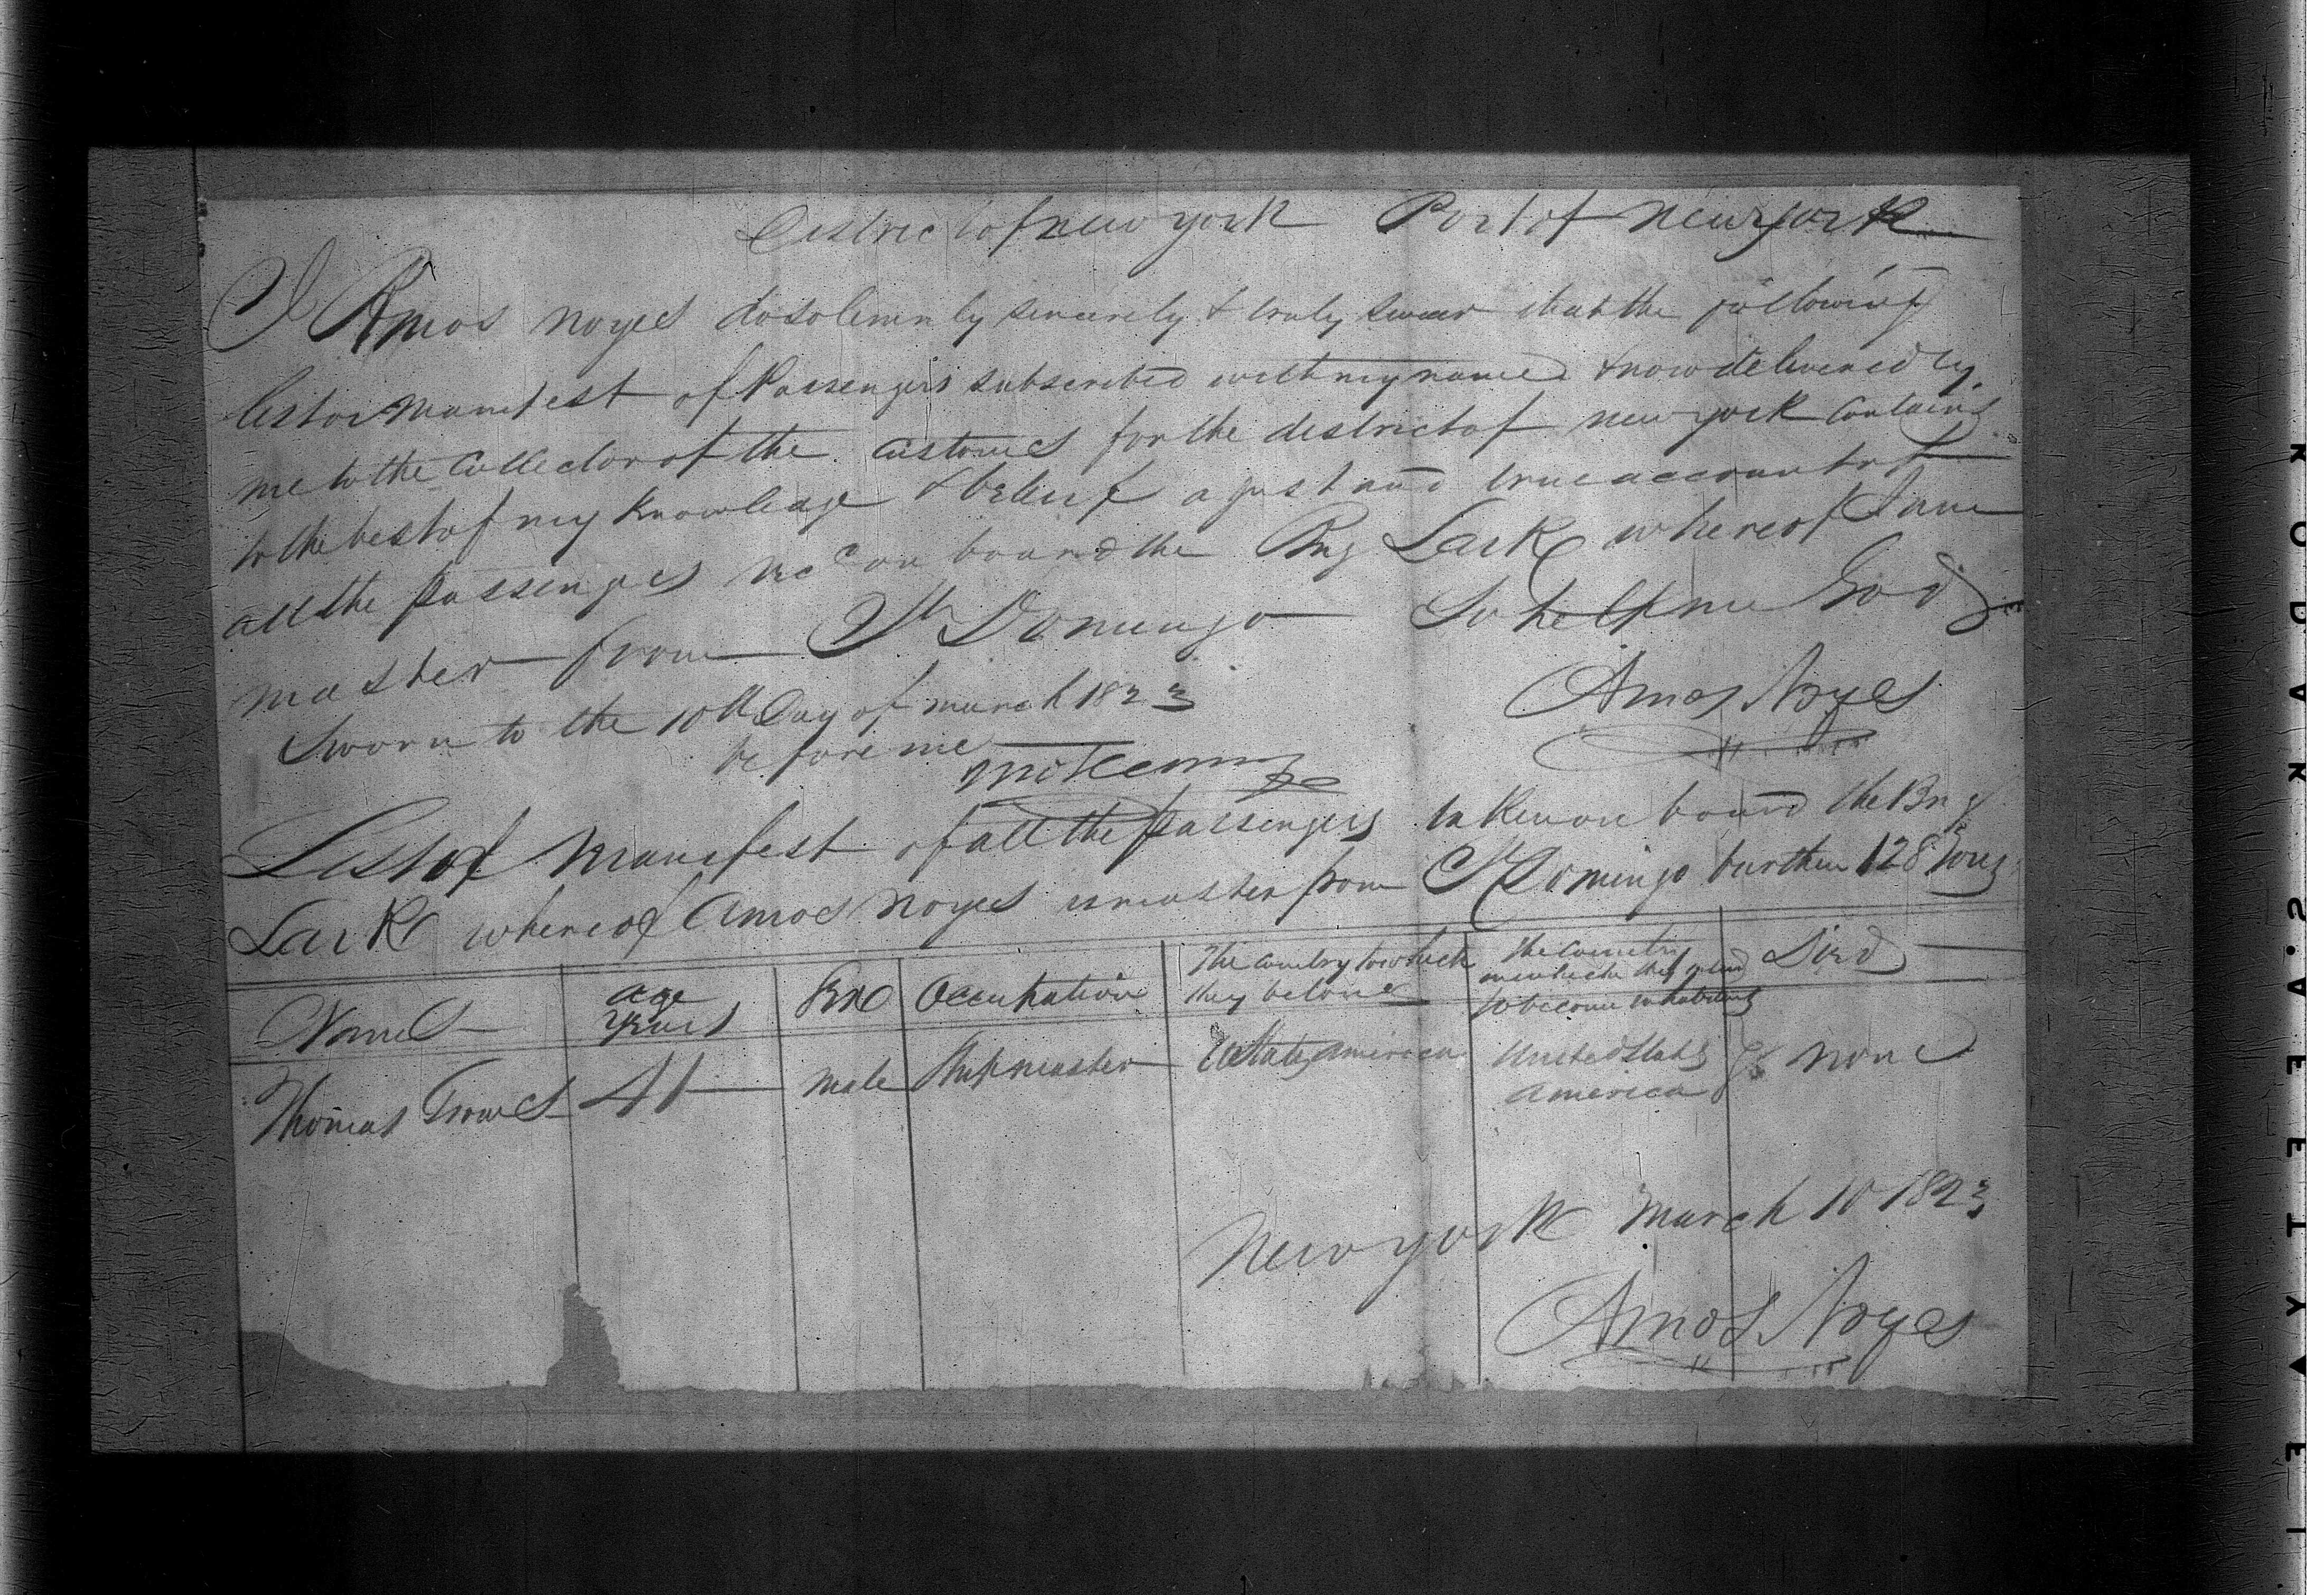 District of new york Port of new york
I Amos noyes do solemnly sincerely & truly swear that the following
list or manifest of Passengers subscribed with my name & now delivered by
me to the Collector of the customs for the district of new york contains
to the best of my knowledge & belief a just and true account of
all the passengers recd on board the Brig Lark whereof I am
master from St Domingo So help me God
Sworn to the 10th Day of march 1823
Amos Noyes
before me
List of manifest of all the passengers taken on board the Brig
Lark whereof Amos Noyes is master from St Domingo burthen 128 Tons
Names age years Sex Occupation The country to which they belong The country in which they intend to become inhabitants Died
Thomas 41 male Shipmaster UStates America United States America none
New york March 10 1823
Amos Noyes